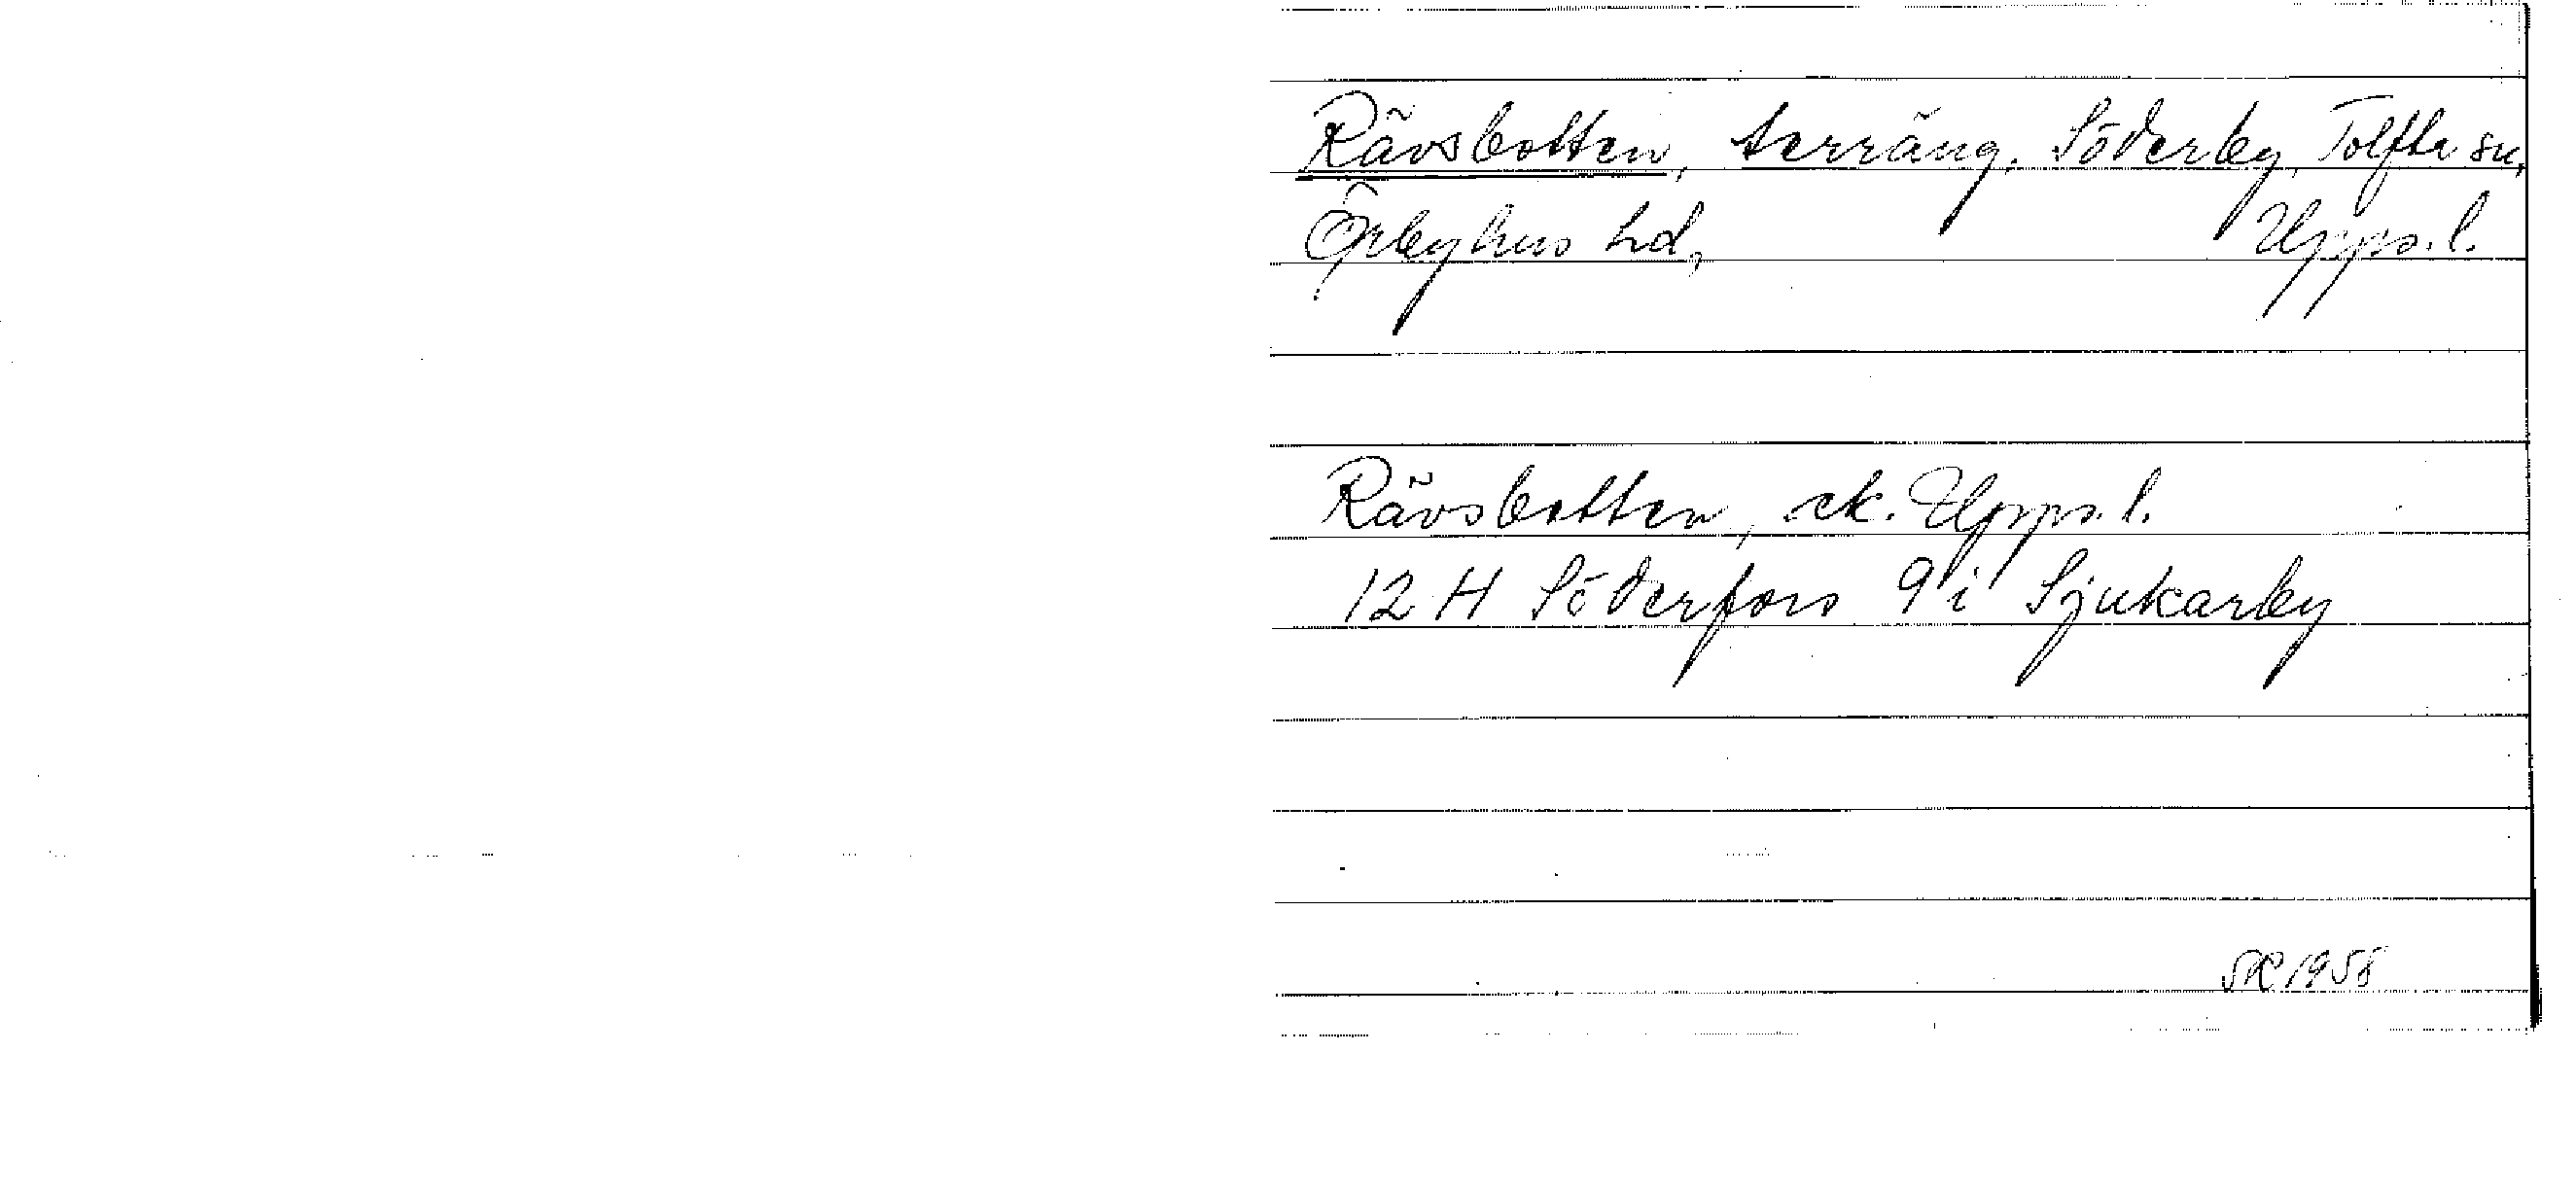 Rävsbotten, terräng. Söderby, Tolfta sn,
Örbyhus hd, Upps. l.
Rävsbotten, ek. Upps. l.
12 H Söderfors 9 i Sjukarby
1958